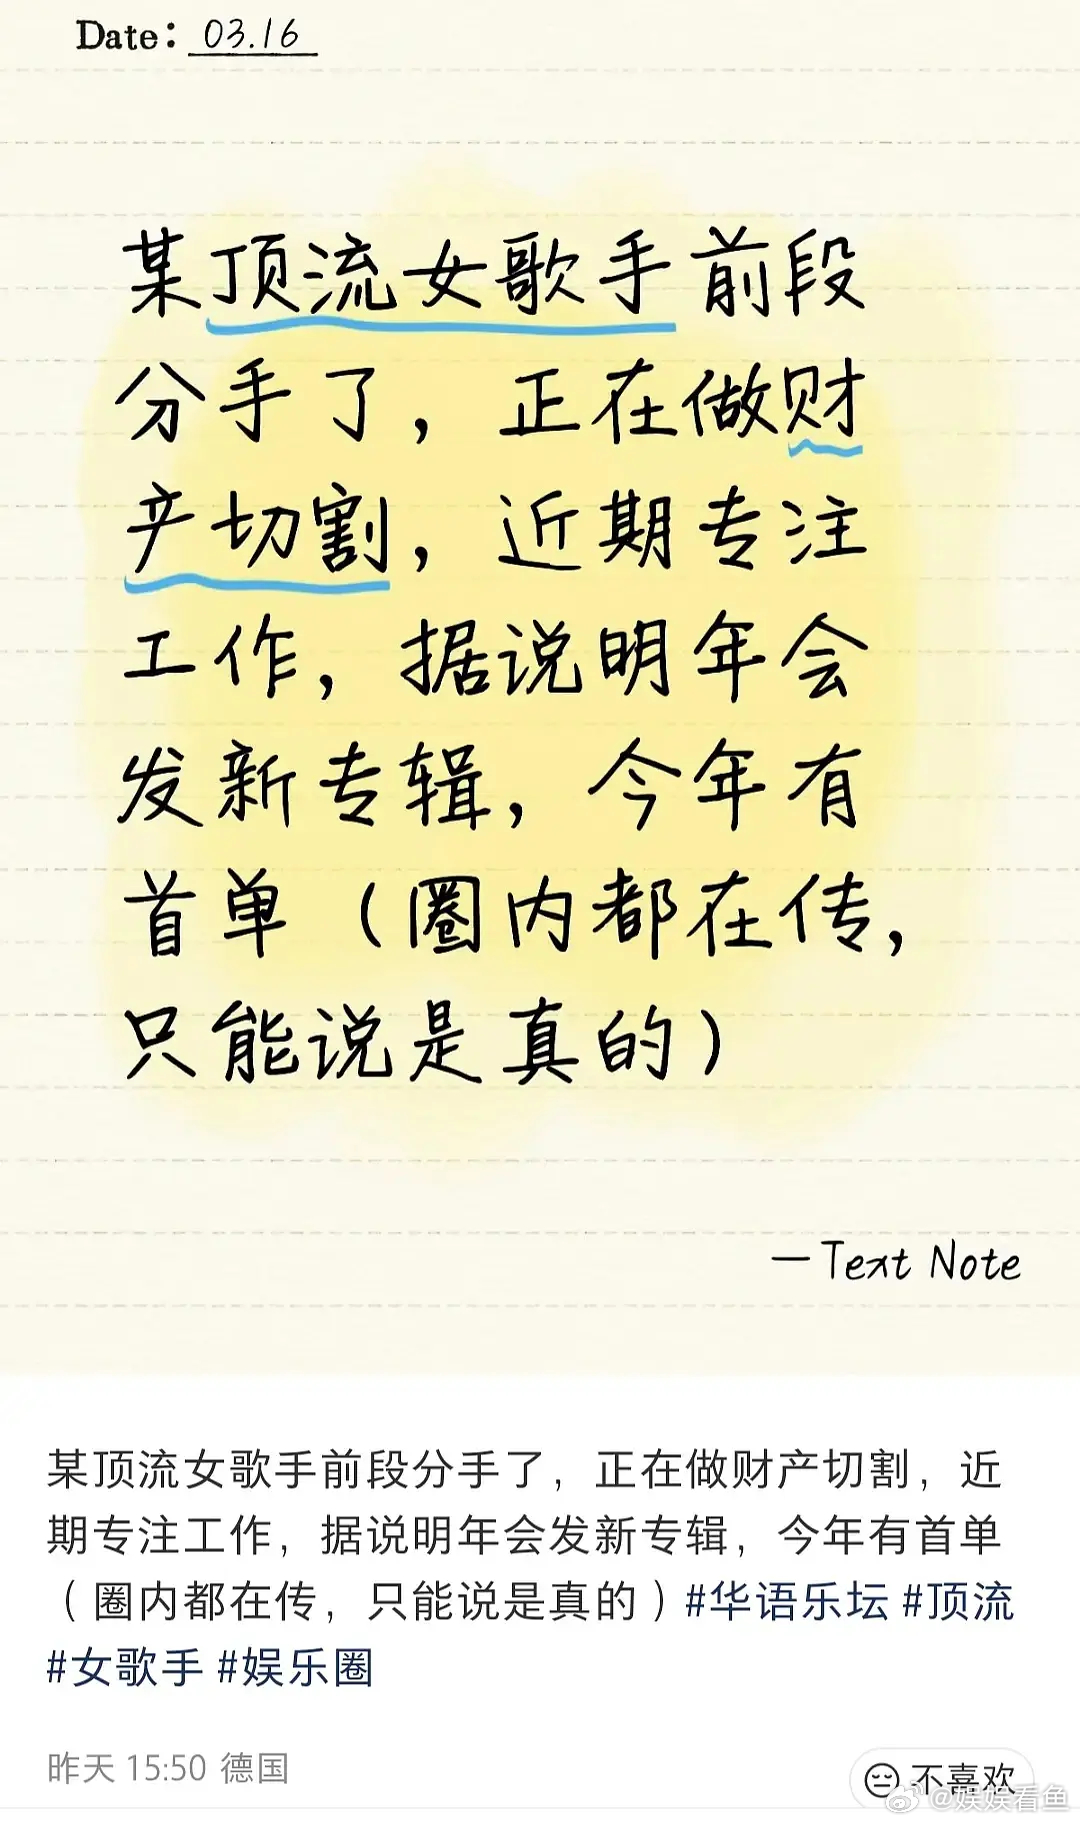 Date: 03.16
某顶流女歌手前段
分手了，正在做财
产切割，近期专注
工作，据说明年会
发新专辑，今年有
首单（圈内都在传，
只能说是真的）
—Text Note
某顶流女歌手前段分手了，正在做财产切割，近
期专注工作，据说明年会发新专辑，今年有首单
（圈内都在传，只能说是真的）#华语乐坛 #顶流
#女歌手 #娱乐圈
昨天 15:50 德国
不喜欢
@娱娱看鱼